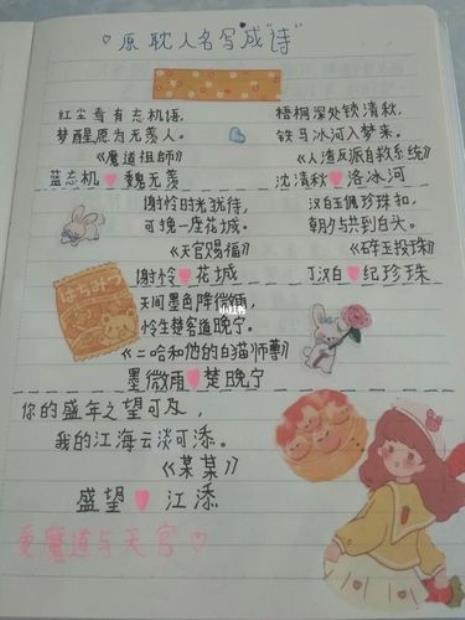 ♡原耽人名写成"诗"
红尘看有忘机语,
梦醒愿为无羡人。
《魔道祖師》
蓝忘机♥魏无羡
梧桐深处锁清秋,
铁马冰河入梦来。
《人渣反派自救系统》
沈清秋♥洛冰河
谢怜时光犹待,
可挽一座花城。
《天官赐福》
谢怜♥花城
汉白玉佩珍珠扣,
朝夕与共到白头。
《碎玉投珠》
丁汉白♥纪珍珠
はちみつ
天间墨色降微雨,
怜生楚客道晚宁。
《二哈和他的白猫师尊》
墨微雨♥楚晚宁
小红书
你的盛年之望可及,
我的江海云淡可添。
《某某》
盛望♥江添
爱魔道与天官♡